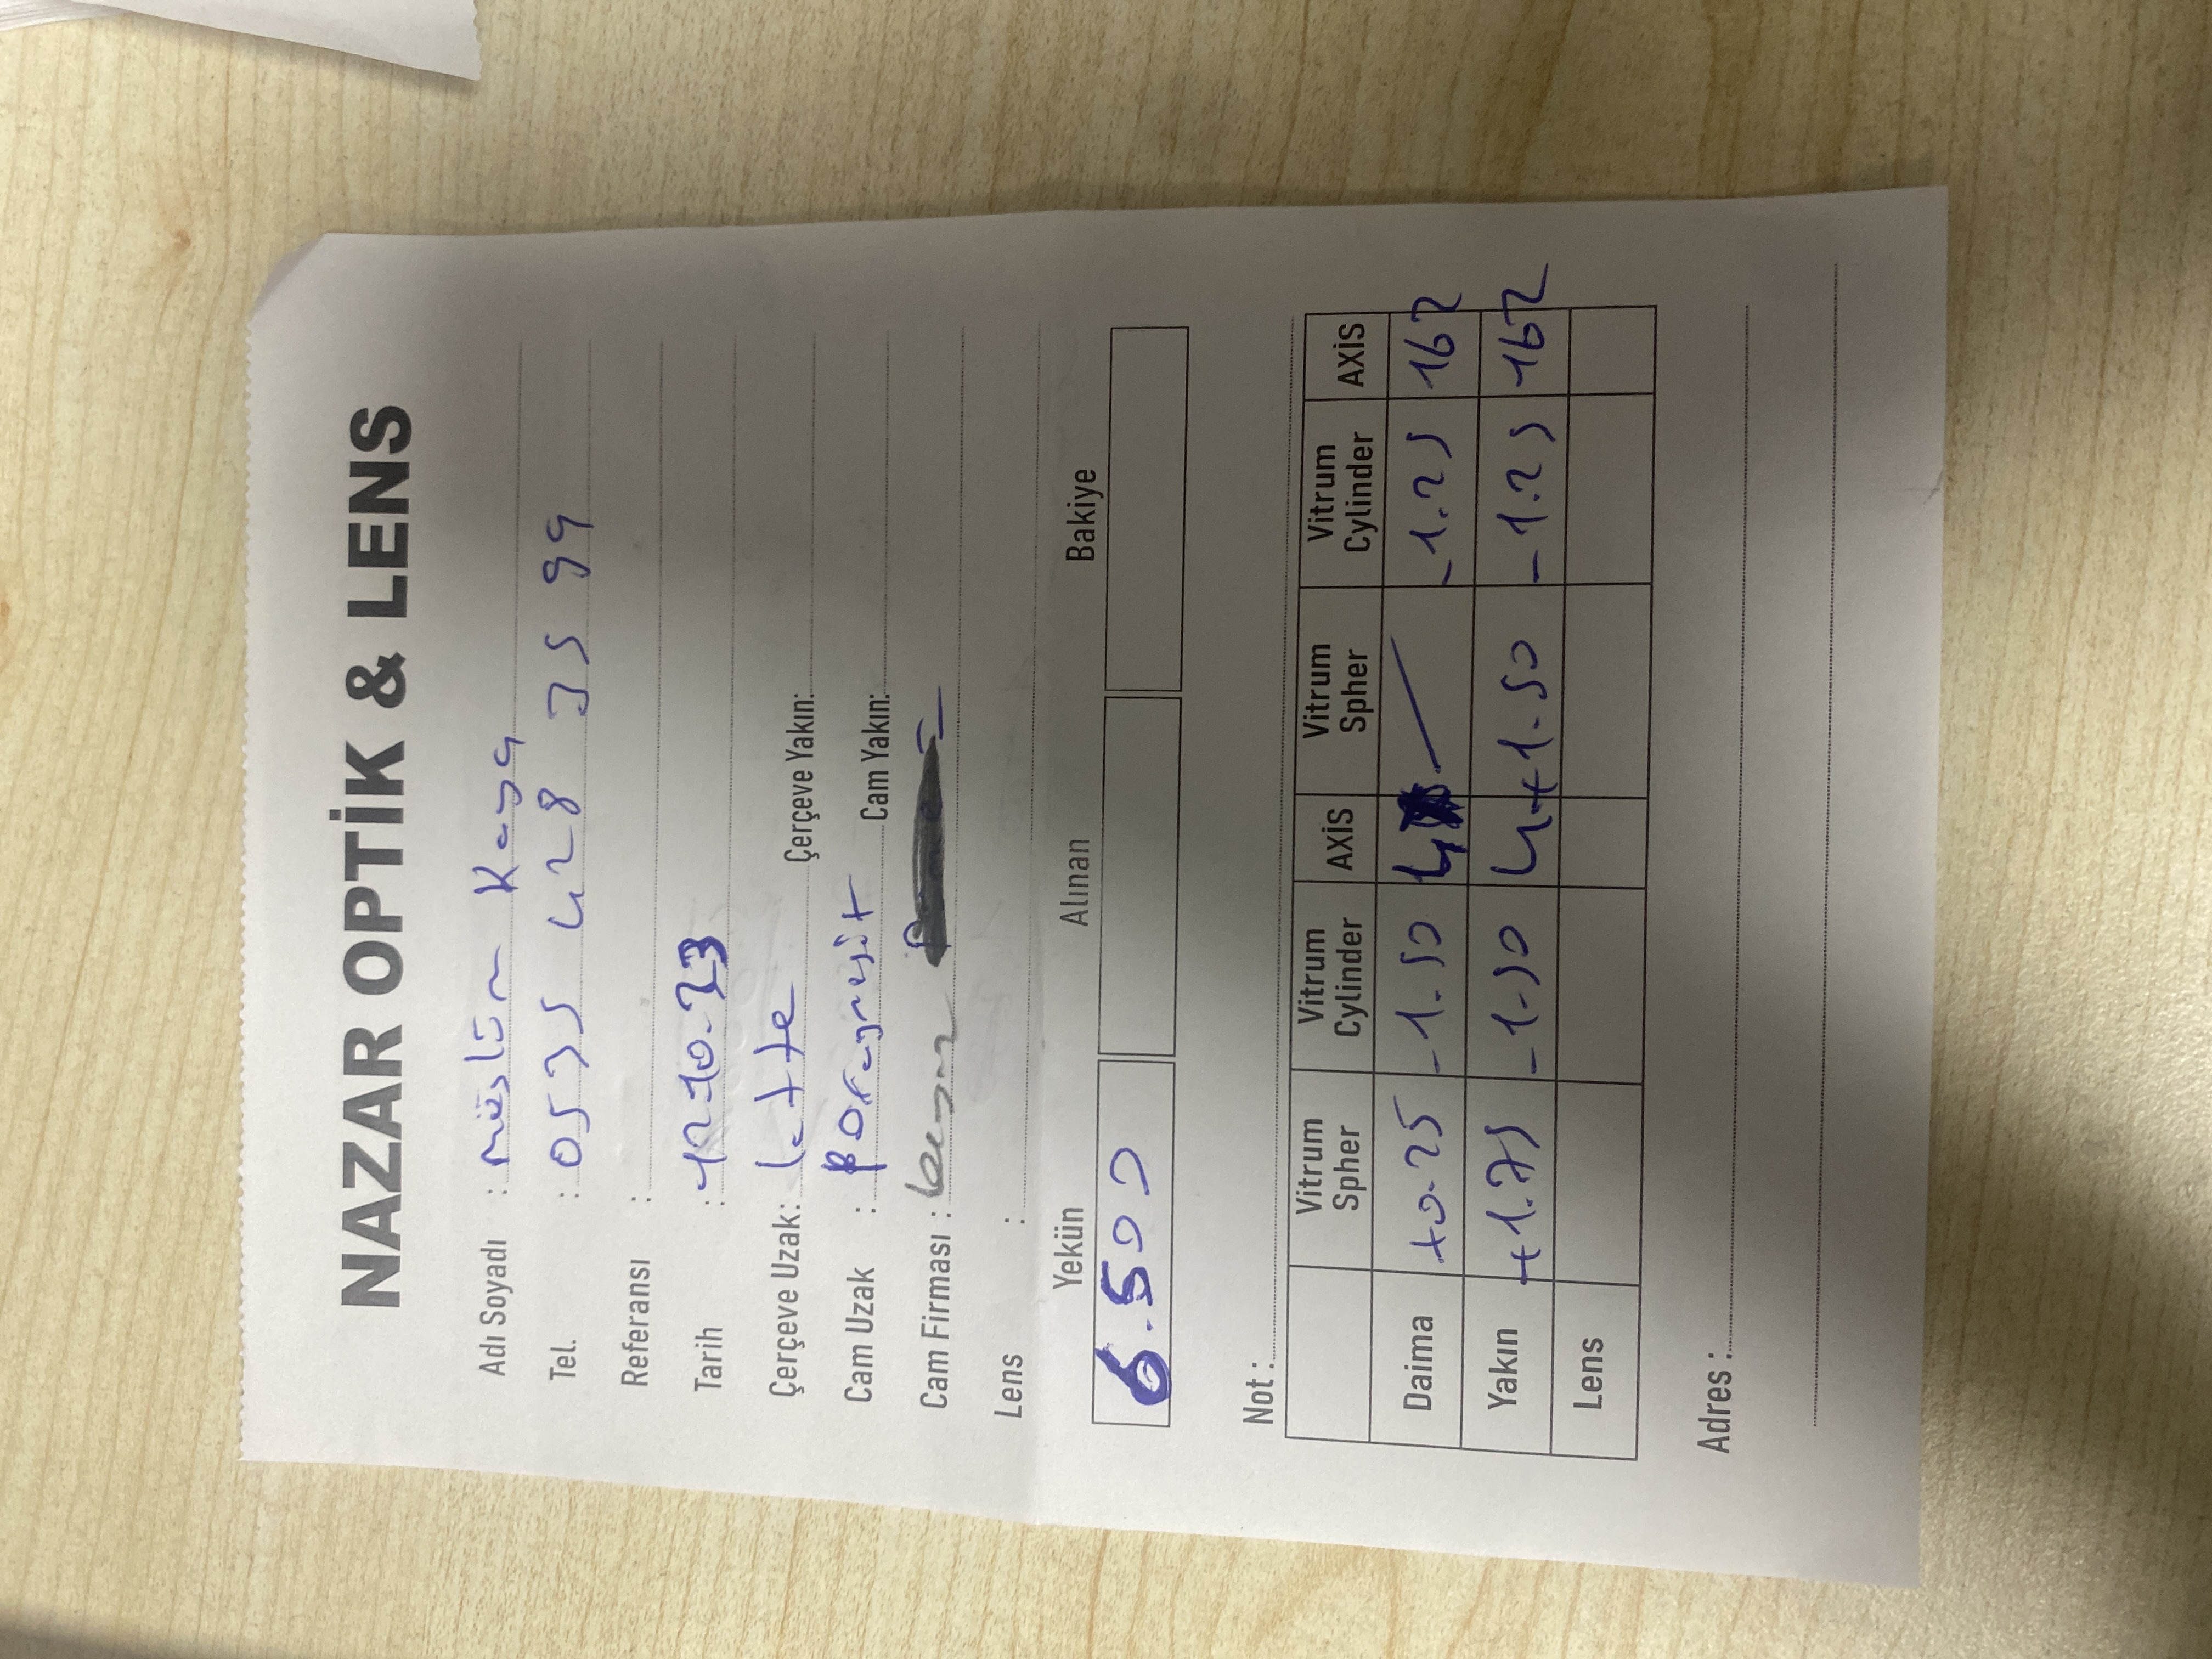 NAZAR OPTİK & LENS
Adı Soyadı : Müslüm Kaya
Tel. : 0535 428 35 99
Referansı :
Tarih : 12.10.23
Çerçeve Uzak: Çerçeve Yakın:
Cam Uzak : Cam Yakın:
Cam Firması :
Lens :
Yekün Alınan Bakiye
6.500
Not :
Vitrum Spher Vitrum Cylinder AXİS Vitrum Spher Vitrum Cylinder AXİS
Daima +0.25 -1.50 4 — -1.25 162
Yakın +1.75 -1.50 4 +1.50 -1.25 162
Lens
Adres :